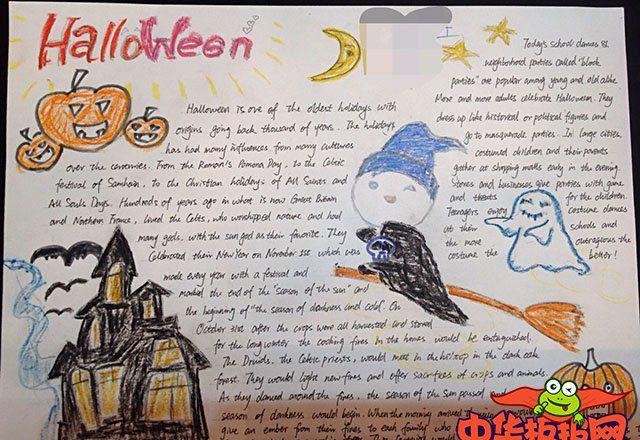 Halloween
Halloween is one of the oldest holidays with
origins going back thousand of years. The holidays
has had many influences from many cultures
over the cenveries. From the Roman's Pomona Day, to the Celtic
festival of Samhain, to the Christian holidays of All Saints and
All Souls Days. Hundreds of years ago in what is now Great Britain
and Northern France, lived the Celts, who worshipped nature and had
many gods, with the sun god as their favorite. They
Celebrated their New Year on November 1st which was
made every year with a festival and
marked the end of the "season of the sun" and
the beginning of "the season of darkness and cold". On
October 31st after the crops were all harvested and stored
for the long winter the cooking fires in the homes would be extinguished.
The Druids, the Celtic priests, would meet in the hilltop in the dark oak
forest. They would light new fires and offer sacrifices of crops and animals.
As they danced around the fires, the season of the sun passed and
season of darkness would begin. When the morning arrived
give an ember from their fires to each family who
Today's school dances &
neighborhood parties called "block
parties" are popular among young and old alike.
More and more adults celebrate Halloween. They
dress up like historical or political figures and
go to masquerade parties. In large cities,
costumed children and their parents
gather at shopping malls early in the evening.
Stores and businesses give parties with game
and treats for the children.
Teenagers enjoy costume dances
at their schools and
the more outrageous the
costume the better!
中华护花网